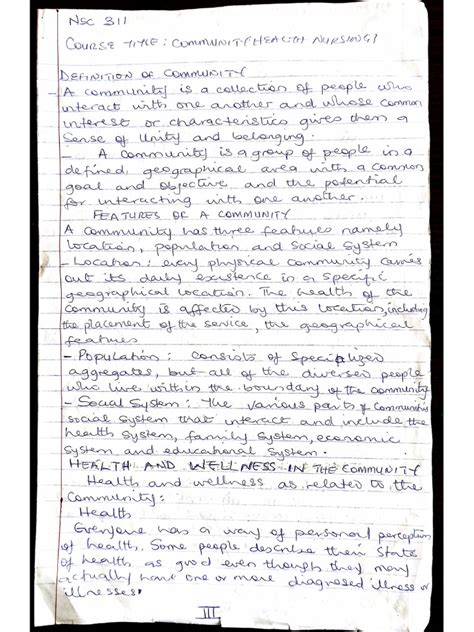 NSC 311
COURSE TITLE: COMMUNITY HEALTH NURSING I
DEFINITION OF COMMUNITY
- A community is a collection of people who
interact with one another and whose common
interest or characteristics gives them a
sense of unity and belonging.
- A community is a group of people in a
defined, geographical area with a common
goal and objective and the potential
for interacting with one another.
FEATURES OF A COMMUNITY
A community has three features namely
location, population and social system
- Location: every physical community carries
out its daily existence in a specific
geographical location. The health of the
community is affected by this location, including
the placement of the service, the geographical
features
- Population: consists of specialized
aggregates, but all of the diverse people
who live within the boundary of the community
- Social System: The various parts of communities
social system that interact and include the
health system, family system, economic
system and educational system.
HEALTH AND WELLNESS IN THE COMMUNITY
Health and wellness as related to the
Community:
Health
Everyone has a way of personal perception
of health. Some people describe their state
of health as good even though they may
actually have one or more diagnosed illness or
illnesses.
III